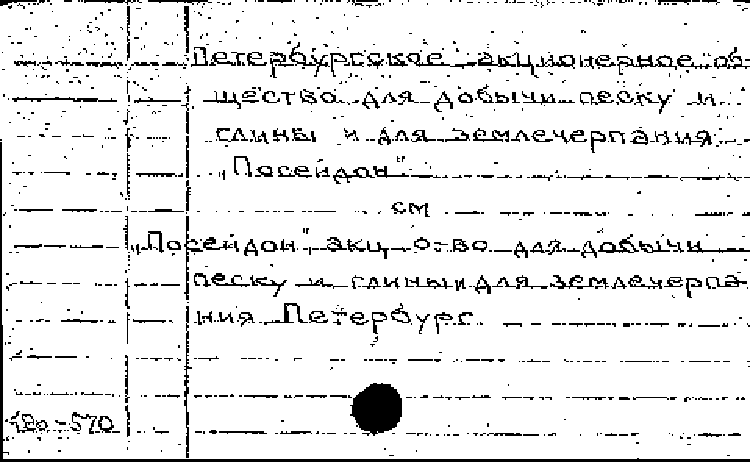 Петербургское акционерное об-
щество для добычи песку и
глины и для землечерпания
„Посейдон"
см
„Посейдон", акц. о-во для добычи
песку и глины и для землечерпа-
ния. Петербург.